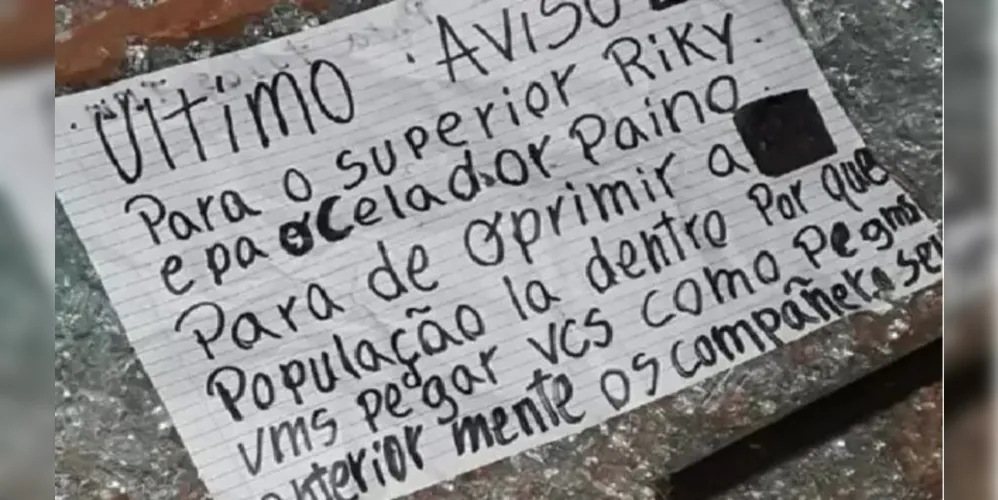 Ultimo . AViSO
Para o superior Riky.
e pa o celador Paino.
Para de oprimir a
População la dentro Por que
vms pegar vcs como Pegms
anterior mente os compañero seu